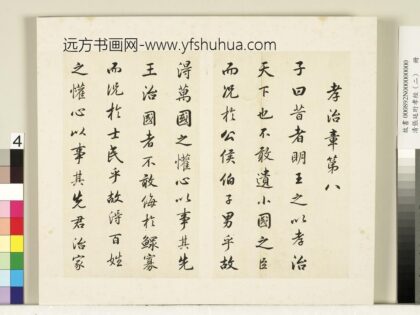 远方书画网-www.yfshuhua.com
孝治章第八
子曰昔者明王之以孝治
天下也不敢遺小國之臣
而況於公侯伯子男乎故
得萬國之懽心以事其先
王治國者不敢侮於鰥寡
而況於士民乎故得百姓
之懽心以事其先君治家
4